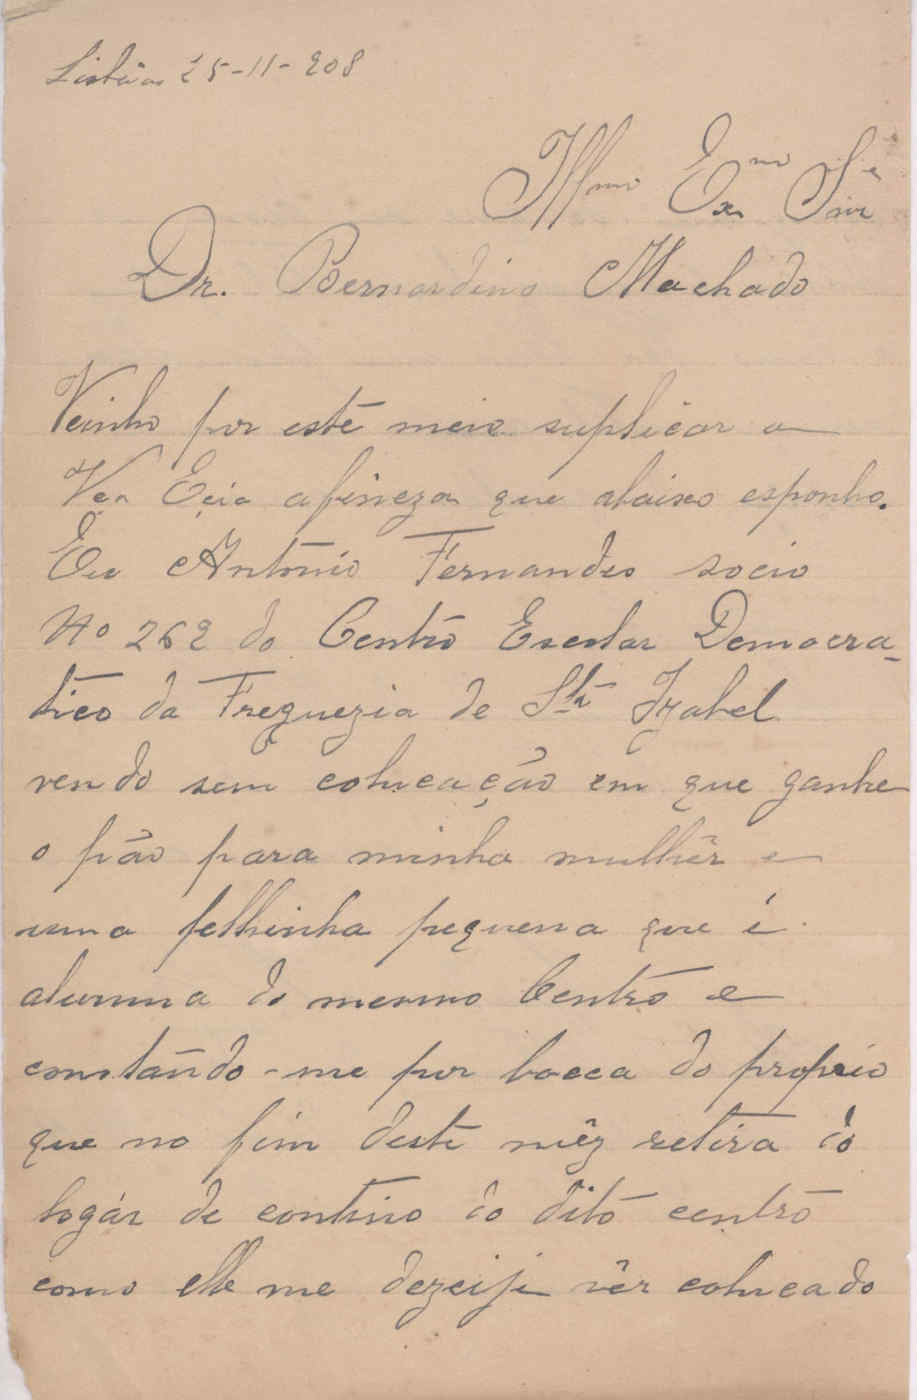 Lisbôa 25-11-908
Illmo Exmo Snr
Dr. Bernardino Machado
Veinho por este meio suplicar a
Vça Ecia afineza que abaixo esponho.
Eu António Fernandes socio
No 262 do Centro Escolar Democra-
tico da Freguezia de Sta Izabel
vendo sem colucação em que ganhe
o pão para minha mulhér e
uma felhinha pequena que é
alumna do mesmo Centro e
constando-me por bocca do proprio
que no fim deste mêz retira do
logár de contino do dito centro
como elle me dezeiji vêr colucado